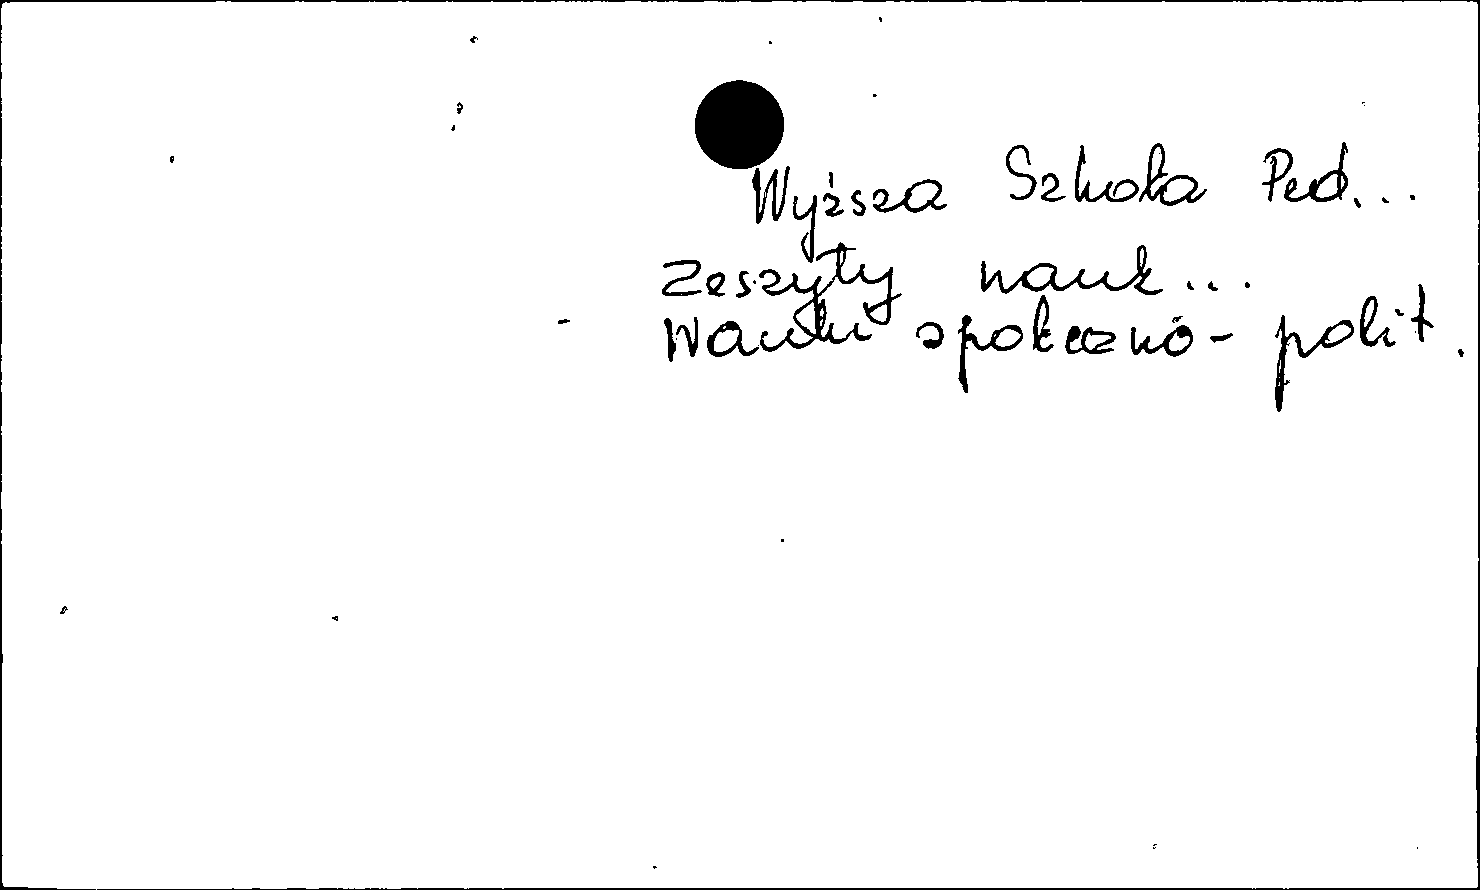 Wyższa Szkoła Ped...
Zeszyty nauk...
Nauki społeczno-polit.